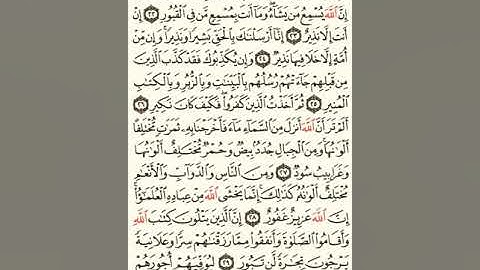 إِنَّ ٱللَّهَ يُسْمِعُ مَن يَشَآءُ ۖ وَمَآ أَنتَ بِمُسْمِعٍ مَّن فِى ٱلْقُبُورِ ٢٢ إِنْ
أَنتَ إِلَّا نَذِيرٌ ٢٣ إِنَّآ أَرْسَلْنَٰكَ بِٱلْحَقِّ بَشِيرًا وَنَذِيرًا ۚ وَإِن مِّنْ
أُمَّةٍ إِلَّا خَلَا فِيهَا نَذِيرٌ ٢٤ وَإِن يُكَذِّبُوكَ فَقَدْ كَذَّبَ ٱلَّذِينَ
مِن قَبْلِهِمْ جَآءَتْهُمْ رُسُلُهُم بِٱلْبَيِّنَٰتِ وَبِٱلزُّبُرِ وَبِٱلْكِتَٰبِ
ٱلْمُنِيرِ ٢٥ ثُمَّ أَخَذْتُ ٱلَّذِينَ كَفَرُوا۟ ۖ فَكَيْفَ كَانَ نَكِيرِ ٢٦
أَلَمْ تَرَ أَنَّ ٱللَّهَ أَنزَلَ مِنَ ٱلسَّمَآءِ مَآءً فَأَخْرَجْنَا بِهِۦ ثَمَرَٰتٍ مُّخْتَلِفًا
أَلْوَٰنُهَا ۚ وَمِنَ ٱلْجِبَالِ جُدَدٌۢ بِيضٌ وَحُمْرٌ مُّخْتَلِفٌ أَلْوَٰنُهَا
وَغَرَابِيبُ سُودٌ ٢٧ وَمِنَ ٱلنَّاسِ وَٱلدَّوَآبِّ وَٱلْأَنْعَٰمِ
مُخْتَلِفٌ أَلْوَٰنُهُۥ كَذَٰلِكَ ۗ إِنَّمَا يَخْشَى ٱللَّهَ مِنْ عِبَادِهِ ٱلْعُلَمَٰٓؤُا۟ ۗ
إِنَّ ٱللَّهَ عَزِيزٌ غَفُورٌ ٢٨ إِنَّ ٱلَّذِينَ يَتْلُونَ كِتَٰبَ ٱللَّهِ
وَأَقَامُوا۟ ٱلصَّلَوٰةَ وَأَنفَقُوا۟ مِمَّا رَزَقْنَٰهُمْ سِرًّا وَعَلَانِيَةً
يَرْجُونَ تِجَٰرَةً لَّن تَبُورَ ٢٩ لِيُوَفِّيَهُمْ أُجُورَهُمْ